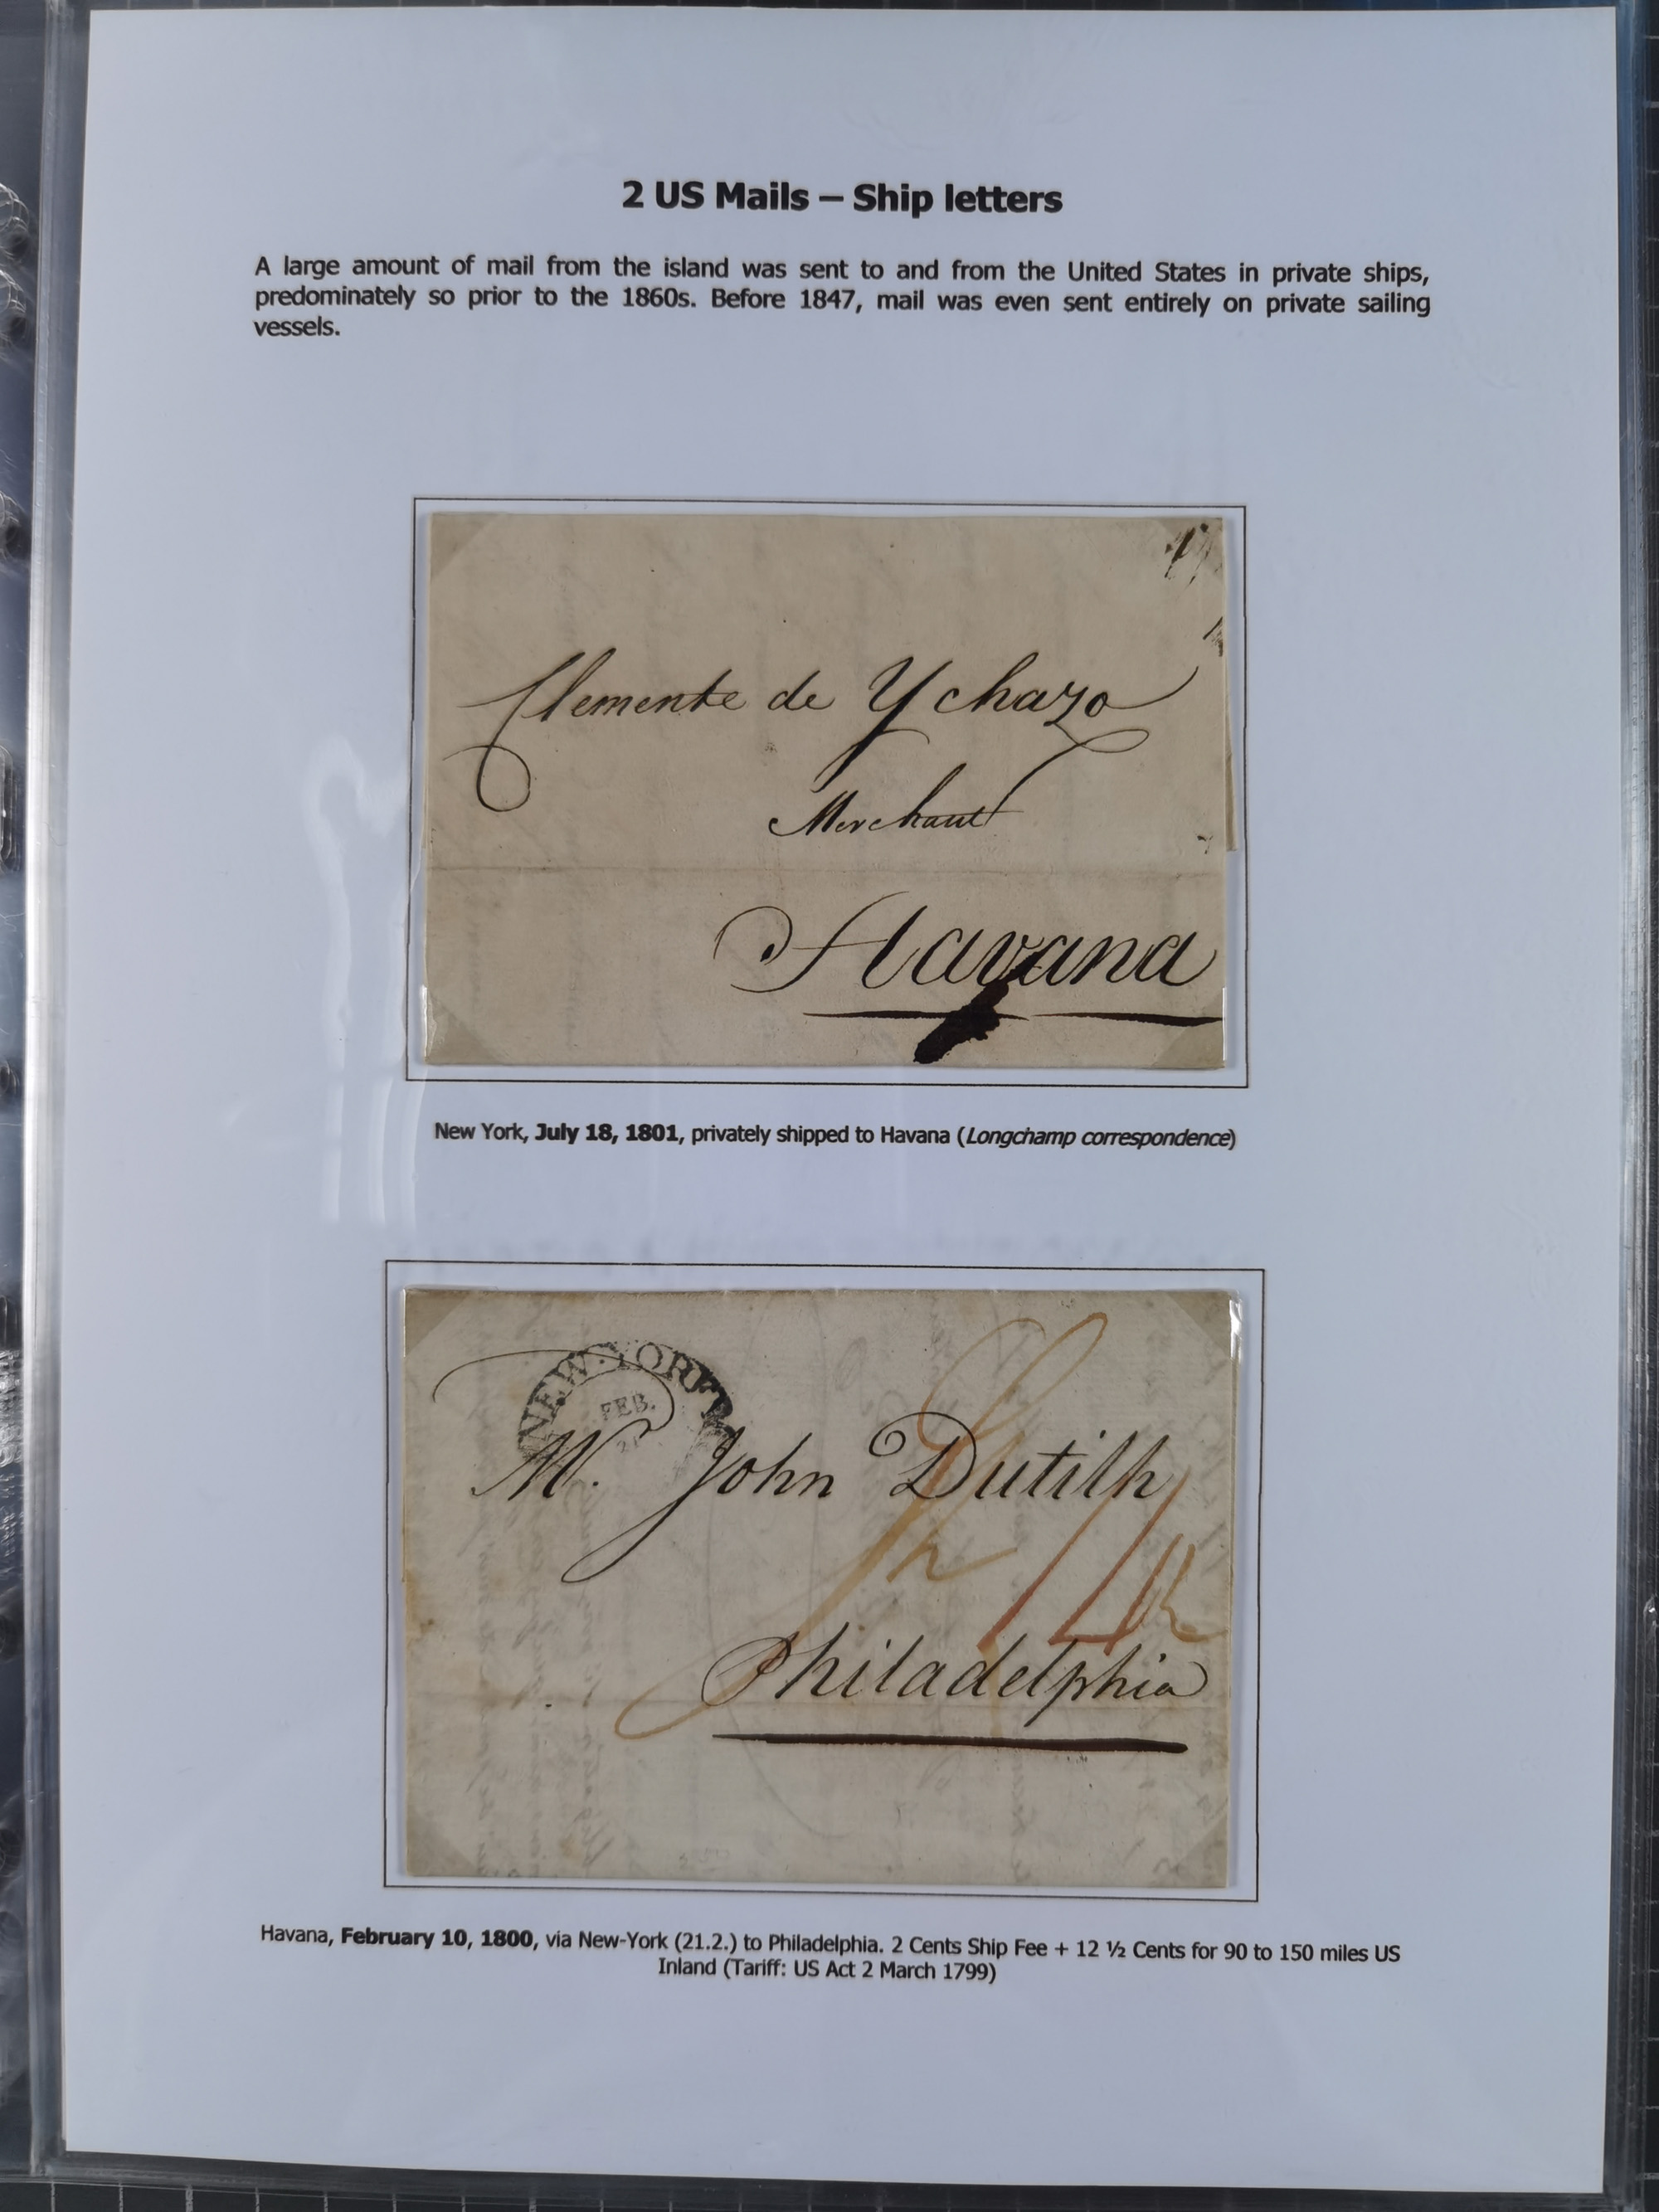 2 US Mails – Ship letters
A large amount of mail from the island was sent to and from the United States in private ships,
predominately so prior to the 1860s. Before 1847, mail was even sent entirely on private sailing
vessels.
Clemente de Ychazo
Merchant
Havana
New York, July 18, 1801, privately shipped to Havana (Longchamp correspondence)
NEW. YORK
FEB.
21
M. John Dutilh
14½
Philadelphia
Havana, February 10, 1800, via New-York (21.2.) to Philadelphia. 2 Cents Ship Fee + 12 ½ Cents for 90 to 150 miles US
Inland (Tariff: US Act 2 March 1799)